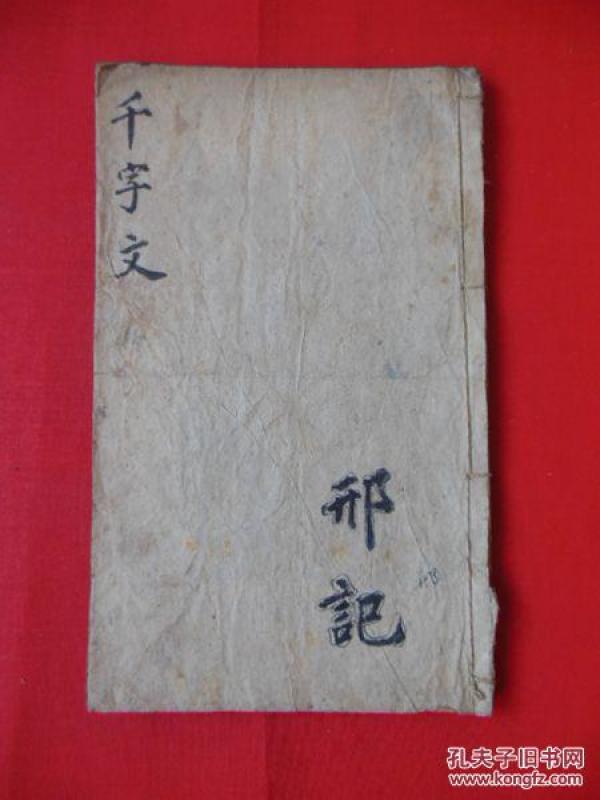 千字文
邢記
孔夫子旧书网
www.kongfz.com